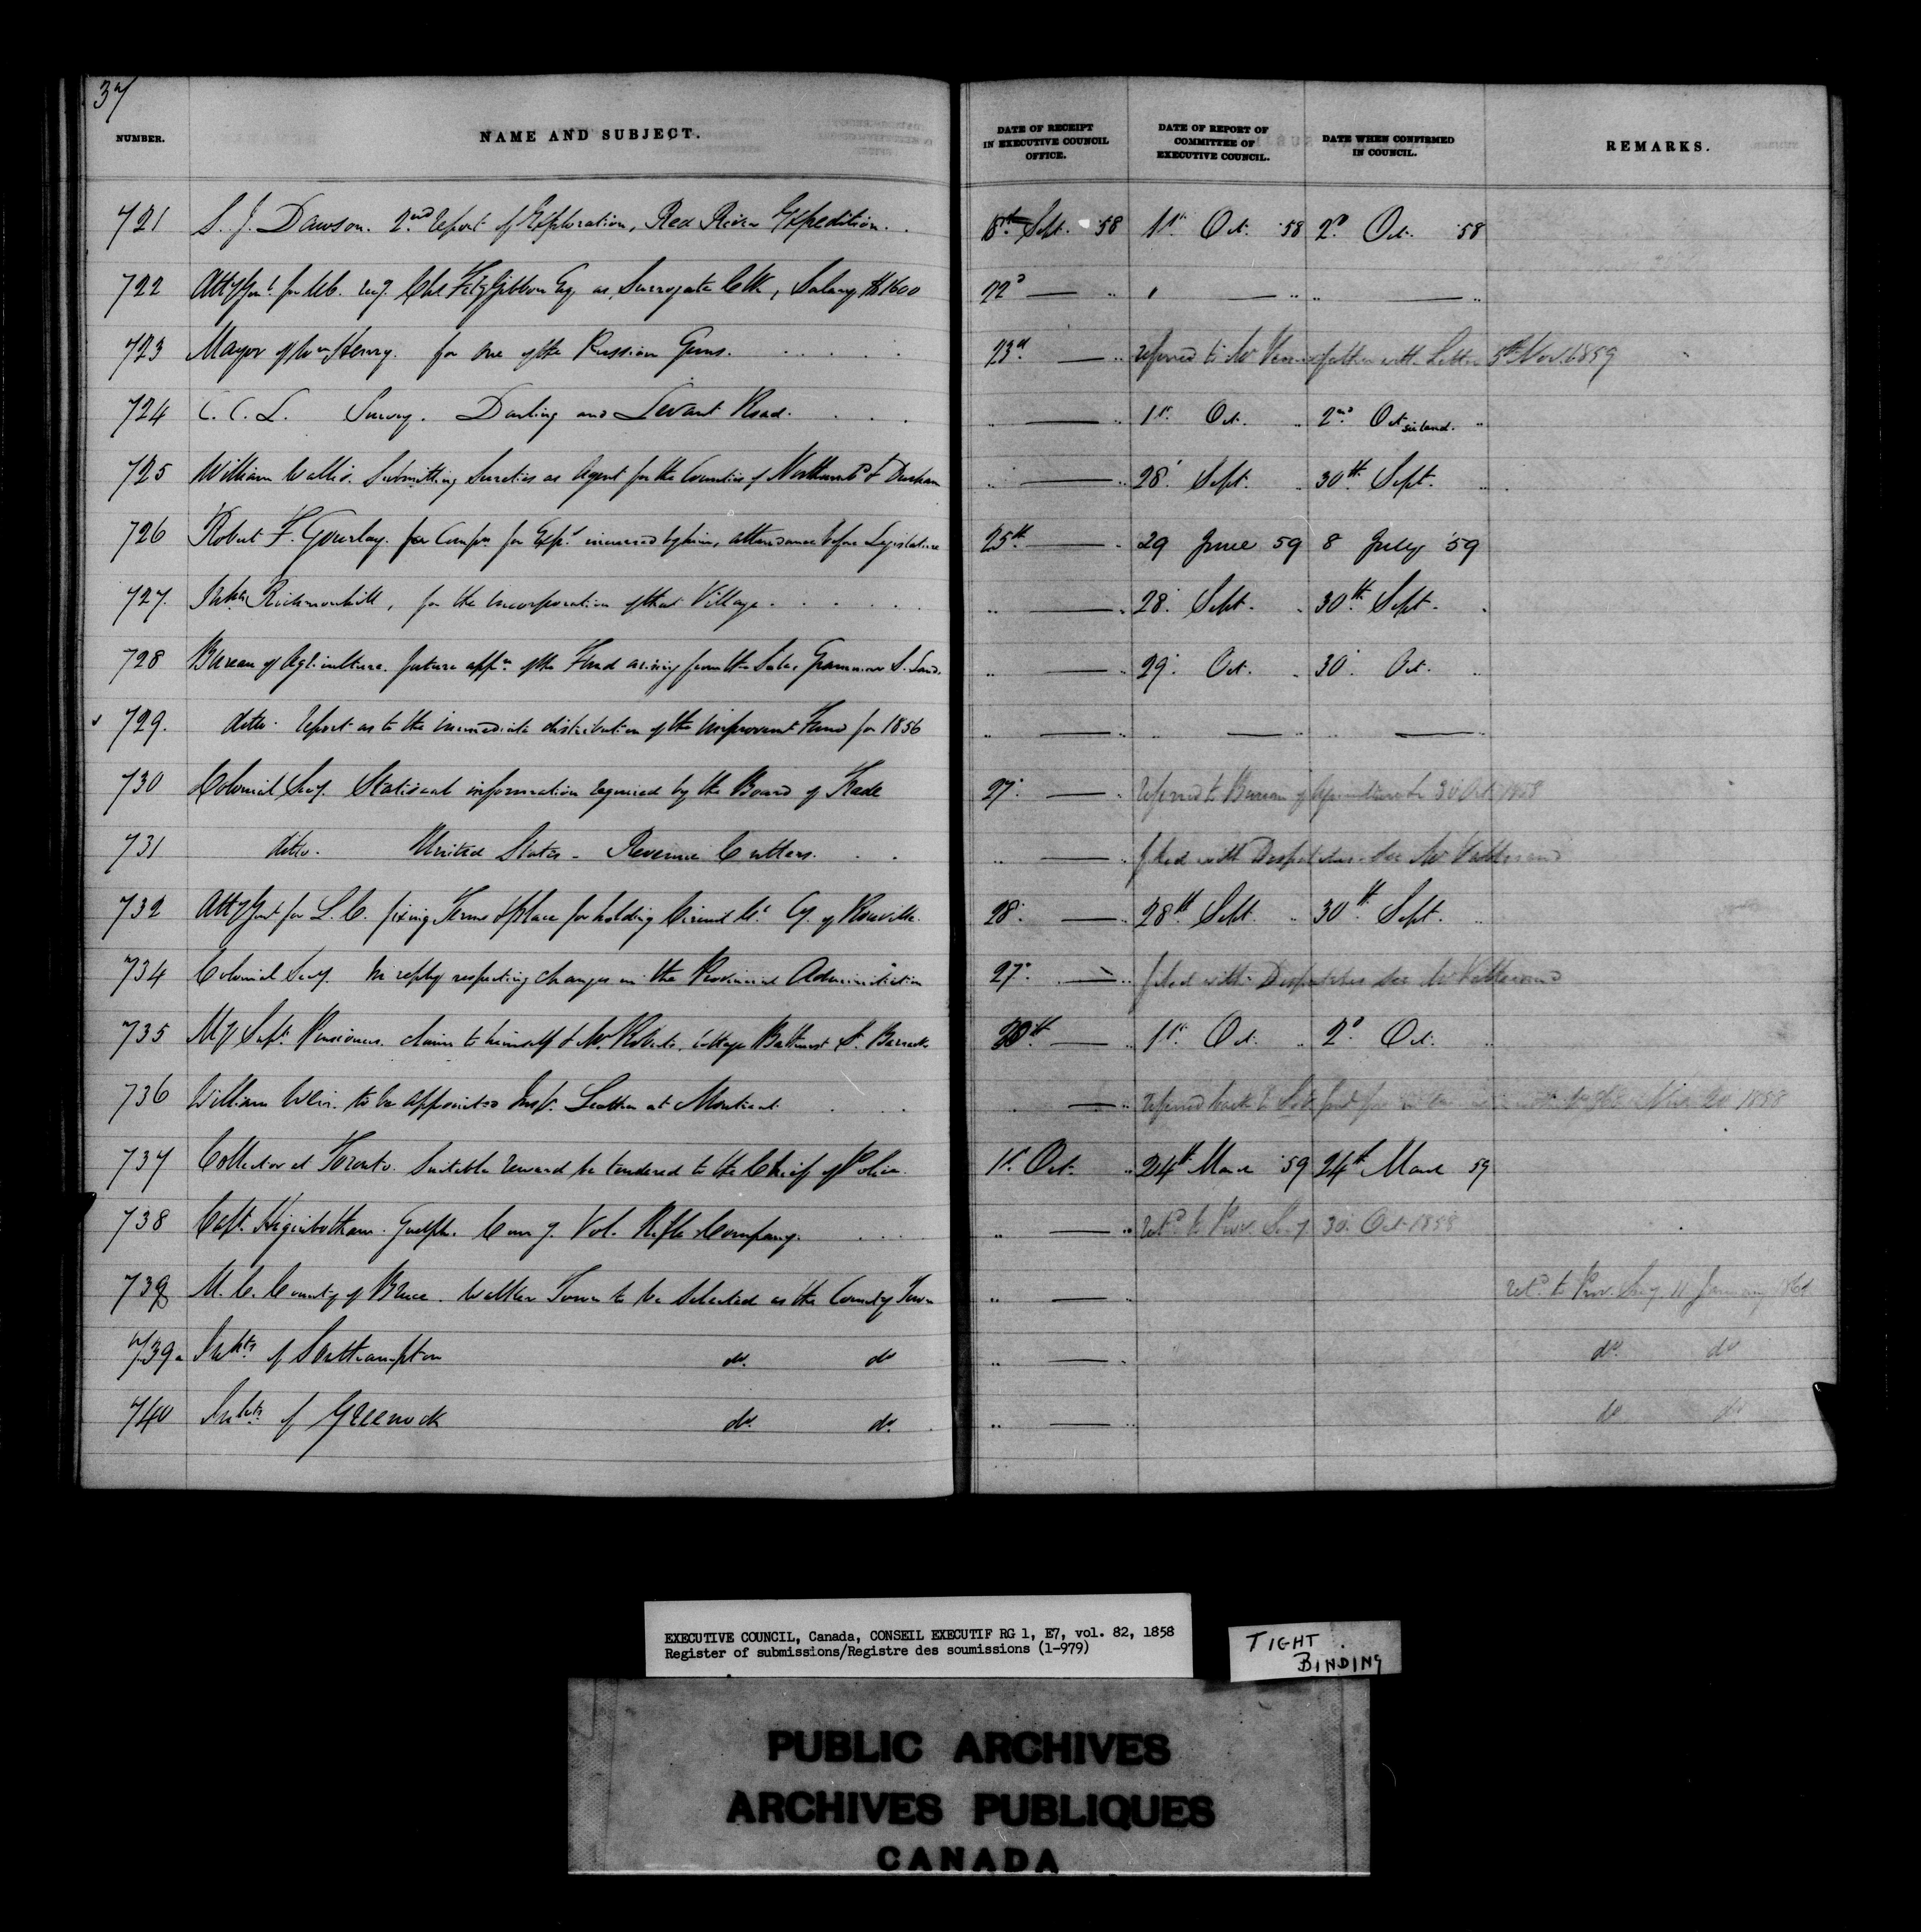 37
NUMBER. NAME AND SUBJECT. DATE OF RECEIPT IN EXECUTIVE COUNCIL OFFICE. DATE OF REPORT OF COMMITTEE OF EXECUTIVE COUNCIL. DATE WHEN CONFIRMED IN COUNCIL. REMARKS.
721 S. J. Dawson. 2nd report of Exploration, Red River Expedition. 18th Sept. '58 1st Oct. '58 2d Oct. '58
722 Atty Genl for U.C. Chs FitzGibbon Esq as Surrogate Clk, Salary $1600 22d — " " — " " — "
723 Mayor of Wm Henry. for one of the Russian Guns. 23d — " referred to Mr with Letter 5th Nov 1859
724 C. C. L. Survey. Darling and Levant Road. " — " 1st Oct. " 2nd Oct "
725 William Wallis. Submitting Sureties as Agent for the Counties of Northumbd & Durham " — " 28' Sept. " 30th Sept. "
726 Robert F. Gourlay. for Compn for Exps incurred by him, attendance before Legislature 25th — " 29 June 59 8 July '59
727. Inhbts Richmondhill, for the Incorporation of that Village. " — " 28' Sept. " 30th Sept. "
728 Bureau of Agriculture. future appn of the Fund arising from the Sales Grammar S. Land. " — " 29' Oct. " 30' Oct. "
729. ditto. report as to the immediate distribution of the Improvent Fund for 1856 " — " " — " " — "
730 Colonial Secy. Statistical information required by the Board of Trade 27' — " referred to Bureau of Agriculture 30 Oct 1858
731 ditto. United States - Revenue Cutters. " — " filed with Despatches
732 Atty Genl for L. C. fixing Terms & Place for holding Circuit Ct Cy. of Rouville. 28' — " 28th Sept. " 30th Sept. "
734 Colonial Secy. In reply respecting changes in the Provincial Administration 27' — " filed with Despatches
735 Supt. Pensioners. claim to himself & Mr Roberts. Cottage Bathurst St. Barracks — " 1st Oct. " 2d Oct. "
736 William Weir. to be appointed Inspr. Leather at Montreal. — " referred back to 1858
737 Collector at Toronto. Suitable reward be tendered to the Chief of Police. 1st Oct. " 24th March '59 24th March 59
738 Capt. Higinbotham. Guelph. Vol. Rifle Company. " — " retd to Prov. Secy 30. Oct. 1858
739 M. C. County of Bruce. Walker Town to be Selected as the County Town " — " retd to Prov. Secy. 11 January
739a Inhbts of Southampton do. do " — " do. do
740 Inhbts of Greenock do. do. " — " do do
EXECUTIVE COUNCIL, Canada, CONSEIL EXECUTIF RG 1, E7, vol. 82, 1858
Register of submissions/Registre des soumissions (1-979)
TIGHT
BINDING
PUBLIC ARCHIVES
ARCHIVES PUBLIQUES
CANADA